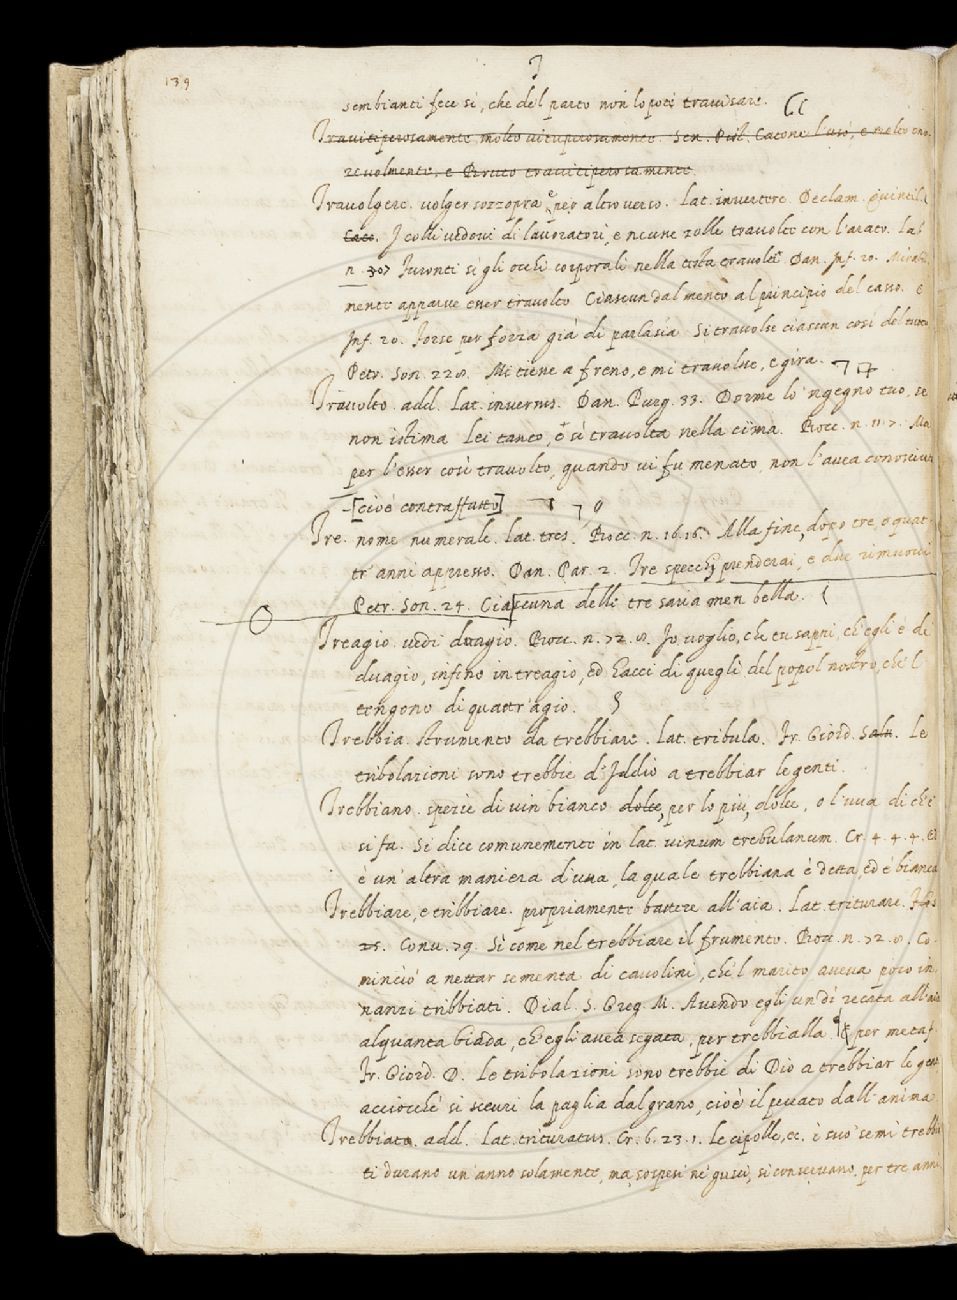 139
sembianti fece sì, che del parto non lo potè travisare.
Travituperosamente, molto vituperosamente. Sen. Pist. Catone l'usò, e molto ono-
revolmente, e Bruto travituperosamente
Travolgere. volger sozzopra, e per altro verso. Lat. invertere. Declam. Quintil.
I colli vedovi di lavoratori, e neune zolle travolte con l'arato. Lab.
n. 307 Travolti sì gli occhi corporali nella testa Dan. Inf. 20. Mirabil-
mente apparve esser travolto Ciascun dal mento al principio del casso. e
Inf. 20. Forse per forza già di parlasia Si travolse ciascun così del tutto
Petr. Son. 228. Mi tiene a freno, e mi travolve, e gira.
Travolto. add. Lat. inversus. Dan. Purg. 33. Dorme lo 'ngegno tuo, se
non istima Lei tanto, e sì travolta nella cima. Bocc. n. 11 7. Ma
per l'esser così travolto, quando vi fu menato, non l'avea conosciuto
[cioè contraffatto]
Tre. nome numerale. Lat. tres. Bocc. n. 16. 16. Alla fine, dopo tre, o quat-
tr' anni appresso. Dan. Par. 2. Tre specchi prenderai, e due rimuovi
Petr. Son. 24. Ciascuna delle tre saria men bella.
Treagio. vedi duagio. Bocc. n. 72. 8. Io voglio, che tu sappi, ch'egli è di
duagio, infino in treagio, ed hacci di quegli del popol nostro, che 'l
tengono di quattr'agio.
Trebbia. strumento da trebbiare. Lat. tribula. Fr. Giord. Salu. Le
tribolazioni sono trebbie d' Iddio a trebbiar le genti.
Trebbiano. spezie di vin bianco dolce, per lo più, dolce, o l'uva di che
si fa. Si dice comunemente in lat. vinum trebulanum. Cr. 4. 4. 4. Ed
è un'altra maniera d'uva, la quale trebbiana è detta, ed è bianca
Trebbiare, e tribbiare. propriamente battere all'aia. Lat. triturare.
25. Conv. 79. Sì come nel trebbiare il frumento. Bocc. n. 72. 8. Co-
minciò a nettar sementa di cavolini, che 'l marito aveva poco in-
nanzi tribbiati. Dial. S. Greg. M. Avendo egli un dì recata all'aia
alquanta biada, ch'egli avea segata, per trebbialla. per metaf.
Fr. Giord. D. Le tribolazioni sono trebbie di Dio a trebbiar le genti
acciocchè si sceuri la paglia dal grano, cioè il peccato dall'anima
Trebbiato. add. Lat. trituratus. Cr. 6. 23. 1. Le cipolle, ec. e suo' semi trebbia-
ti durano un'anno solamente, ma, sospesi ne' gusci, si conservano per tre anni